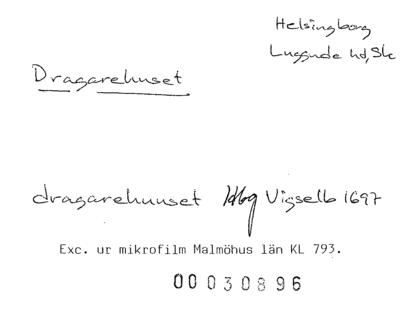 Helsingborg
Luggude hd, Sk
Dragarehuset
dragarehuuset Hbg Vigselb 1697
Exc. ur mikrofilm Malmöhus län KL 793.
00030896